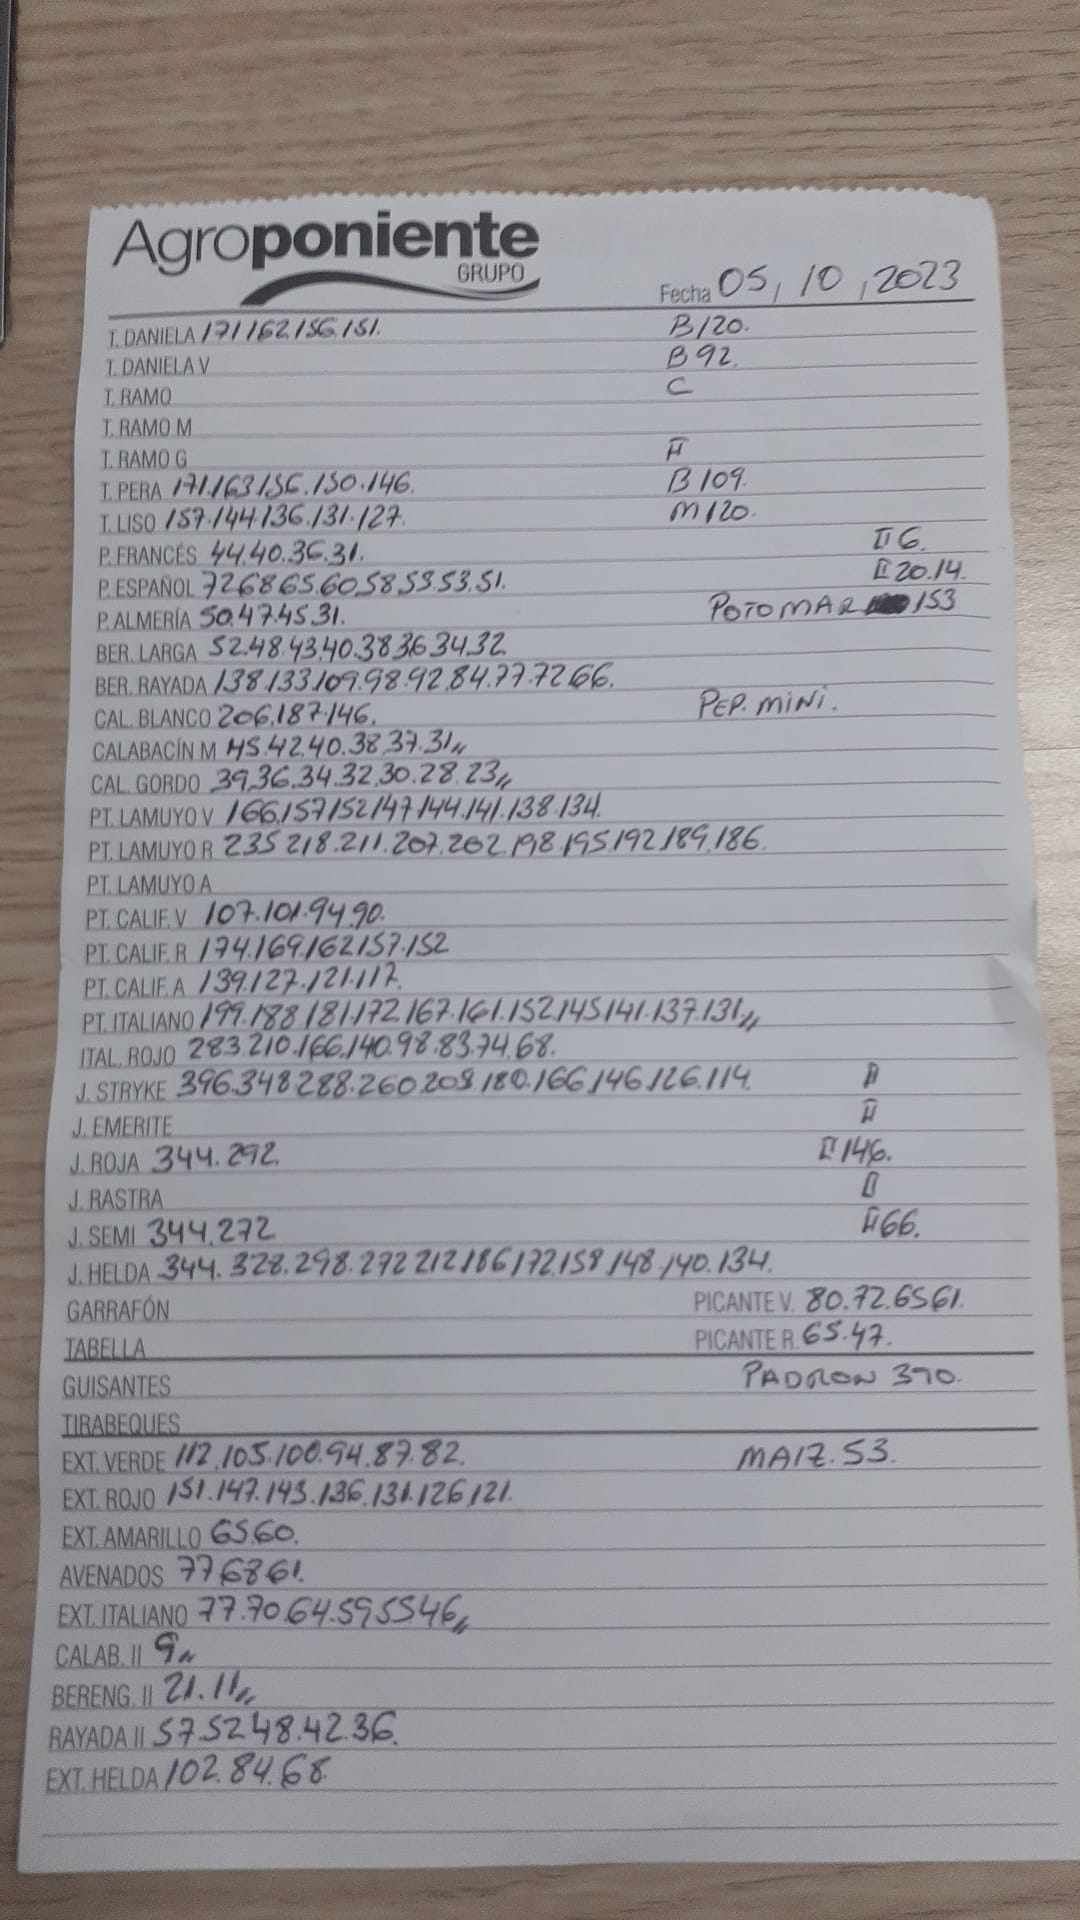 Agroponiente
GRUPO
Fecha 05, 10, 2023
T. DANIELA 171.162.156.151. B120.
T. DANIELA V B92.
T. RAMO C
T. RAMO M
T. RAMO G II
T. PERA 171.163.156.150.146. B109.
T. LISO 157.144.136.131.127. M120.
P. FRANCÉS 44.40.36.31. II 6.
P. ESPAÑOL 72.68.65.60.58.53.53.51. II 20.14.
P. ALMERÍA 50.47.45.31. POTOMAR 153
BER. LARGA 52.48.43.40.38.36.34.32
BER. RAYADA 138.133.109.98.92.84.77.72.66.
CAL. BLANCO 206.187.146. PEP. MINI.
CALABACÍN M 45.42.40.38.37.31,,
CAL. GORDO 39.36.34.32.30.28.23,,
PT. LAMUYO V 166.157.152.147.144.141.138.134.
PT. LAMUYO R 235 218.211.207.202.198.195.192.189.186.
PT. LAMUYO A
PT. CALIF. V 107.101.94.90.
PT. CALIF. R 174.169.162.157.152
PT. CALIF. A 139.127.121.117.
PT. ITALIANO 199.188.181.172.167.161.152.145.141.137.131,,
ITAL. ROJO 283.210.166.140.98.83.74.68.
J. STRYKE 396.348.288.260.208.180.166.146.126.114.
J. EMERITE II
J. ROJA 344.292. II 146.
J. RASTRA
J. SEMI 344.272 II 66.
J. HELDA 344.328.298.272.212.186.172.158.148.140.134.
GARRAFÓN PICANTE V. 80.72.65.61.
TABELLA PICANTE R. 65.47.
GUISANTES PADRON 390.
TIRABEQUES
EXT. VERDE 112.105.100.94.87.82. MAIZ. 53.
EXT. ROJO 151.147.143.136.131.126.121.
EXT. AMARILLO 65.60.
AVENADOS 77.68.61.
EXT. ITALIANO 77.70.64.59.55.46,,
CALAB. II 9,,
BERENG. II 21.11,,
RAYADA II 57.52.48.42.36.
EXT. HELDA 102.84.68